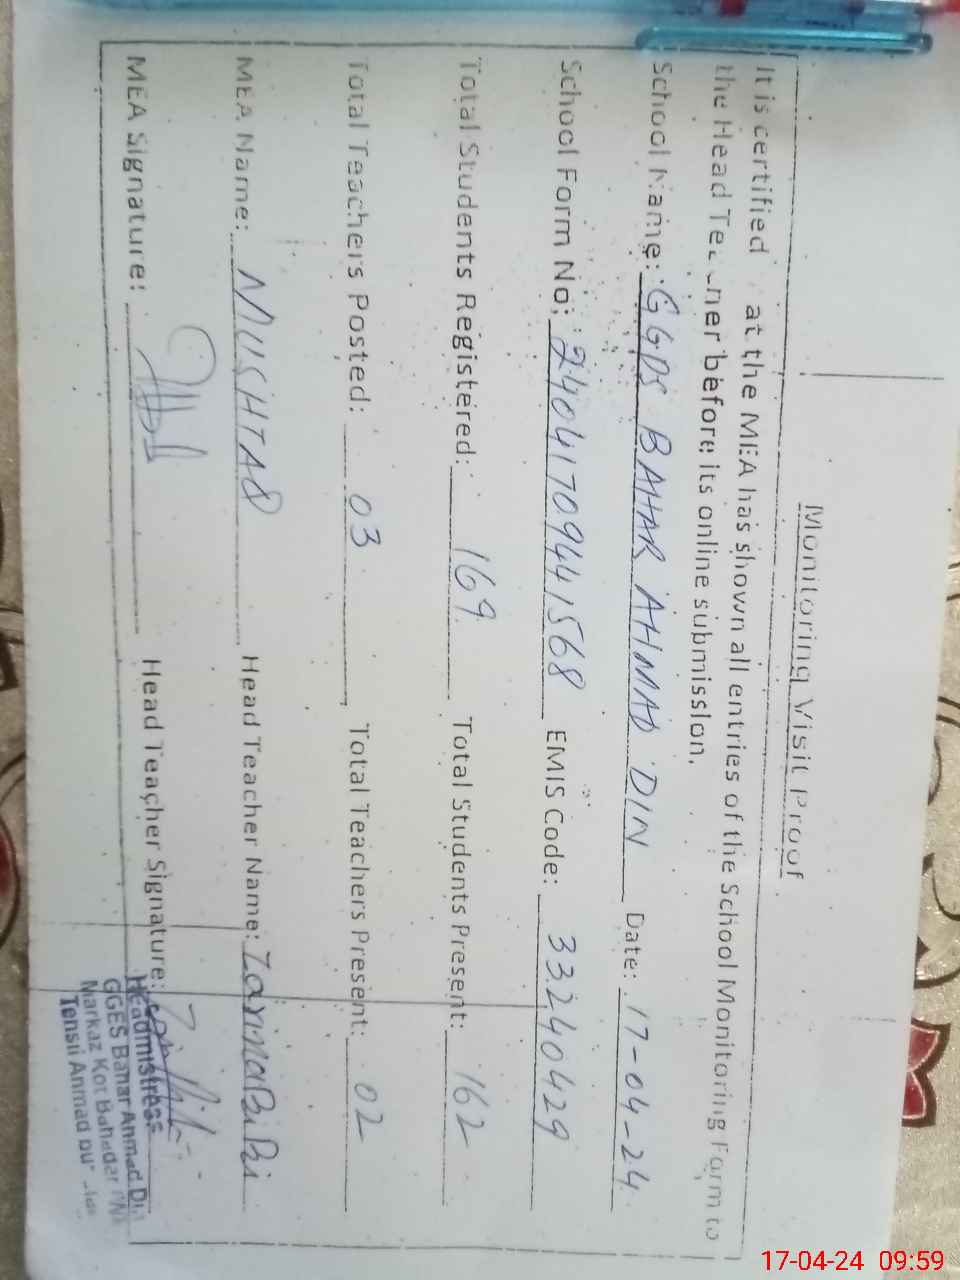 Monitoring Visit Proof
It is certified at the MEA has shown all entries of the School Monitoring Form to
the Head Teacher before its online submission.
School Name: GGPS BAHAR AHMAD DIN Date: 17-04-24
School Form No: 24041709441568 EMIS Code: 33240429
Total Students Registered: 169 Total Students Present: 162
Total Teachers Posted: 03 Total Teachers Present: 02
MEA Name: MUSHTAQ Head Teacher Name: Zarina Bibi
MEA Signature: Head Teacher Signature:
Headmistress
GGES Bahar Ahmad Din
Markaz Kot Bahadar
Tehsil Ahmad pur
17-04-24 09:59